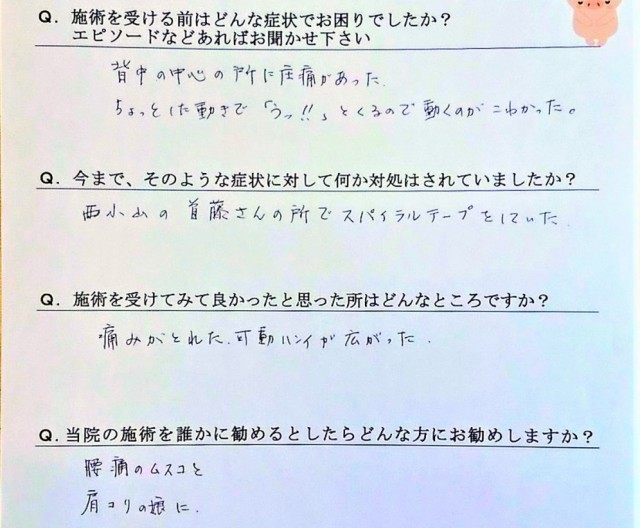 Q. 施術を受ける前はどんな症状でお困りでしたか?
エピソードなどあればお聞かせ下さい
背中の中心の所に圧痛があった.
ちょっとした動きで「うッ!!」とくるので動くのがこわかった。
Q. 今まで、そのような症状に対して何か対処はされていましたか?
西小山の首藤さんの所でスパイラルテープをしていた.
Q. 施術を受けてみて良かったと思った所はどんなところですか?
痛みがとれた.可動ハンイが広がった.
Q. 当院の施術を誰かに勧めるとしたらどんな方にお勧めしますか?
腰痛のムスコと
肩コリの娘に.